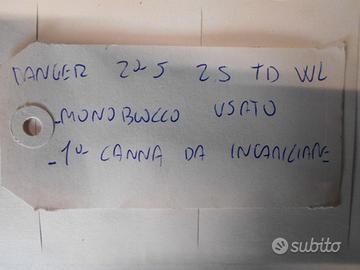 RANGER 2005 2.5 TD WL
-MONOBLOCCO USATO
-1° CANNA DA INCAMICIARE
subito